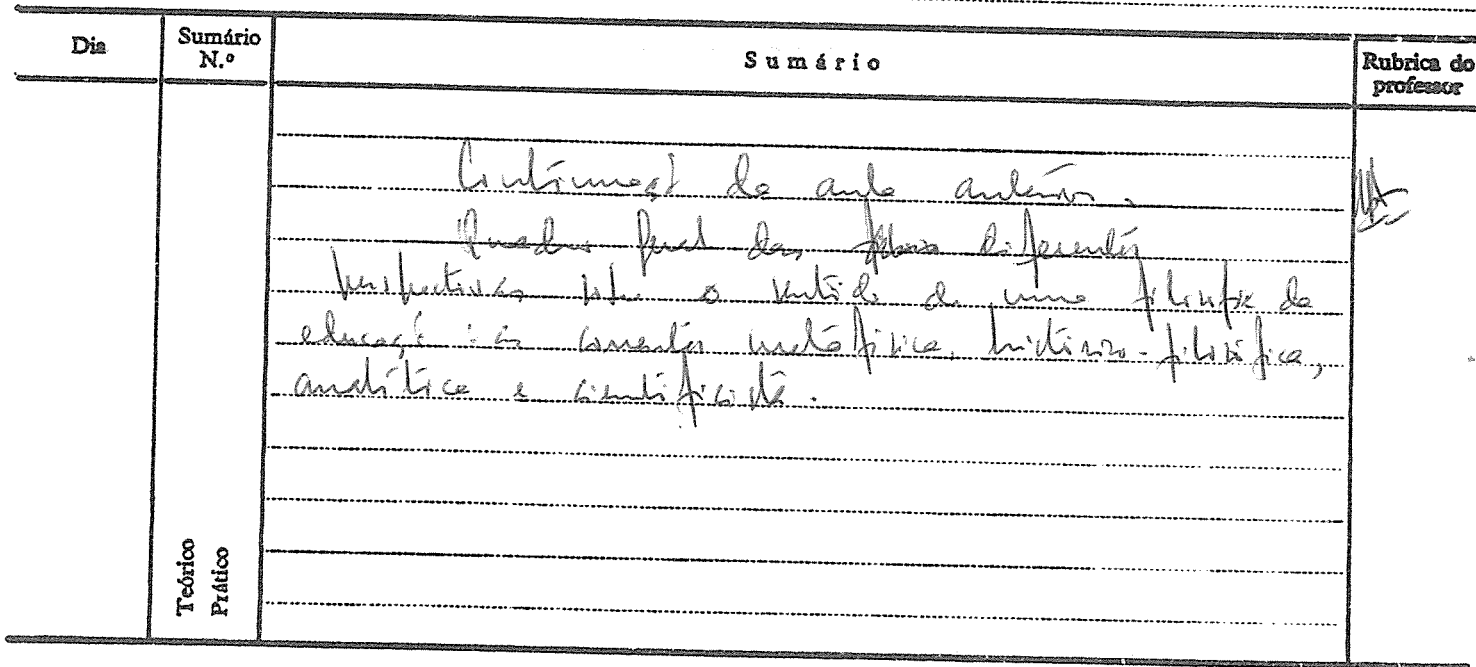 Dia
Sumário
N.º
Sumário
Rubrica do
professor
Continuação da aula anterior.
Quadro geral das diferentes
perspectivas sobre o sentido de uma filosofia da
educação: as correntes metafísica, histórico-filosófica,
analítica e cientificista.
Teórico
Prático